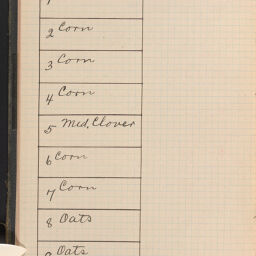 1
2 Corn
3 Corn
4 Corn
5 Med. Clover
6 Corn
7 Corn
8 Oats
9 Oats